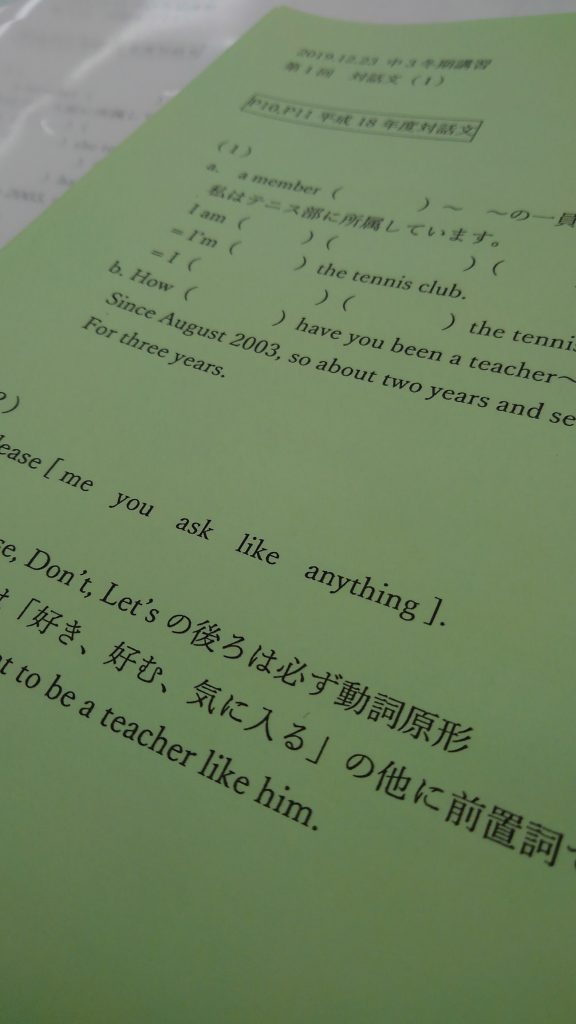 2019.12.23 中3冬期講習
第1回 対話文（1）
P10,P11 平成18年度対話文
（1）
a. a member （ ）～ ～の一員
私はテニス部に所属しています。
I am （ ）（ ）（
= I'm （ ） the tennis club.
= I （ ）（ ） the tennis
b. How （ ） have you been a teacher～
Since August 2003, so about two years and se
For three years.
）
lease [ me you ask like anything ].
se, Don't, Let's の後ろは必ず動詞原形
「好き、好む、気に入る」の他に前置詞で
t to be a teacher like him.